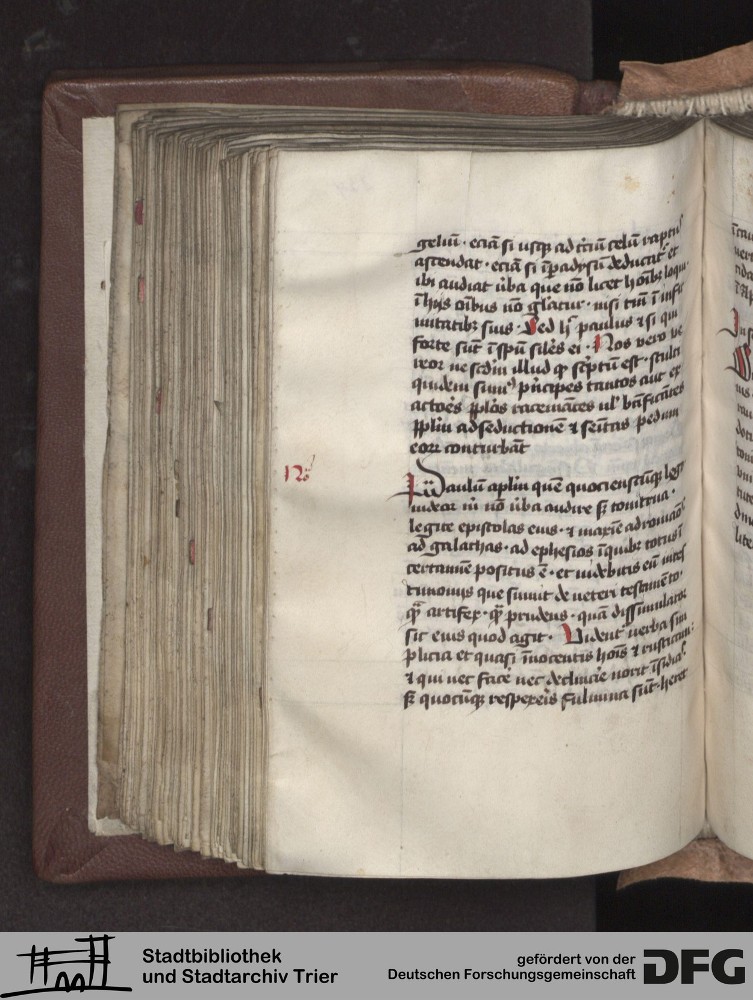 geliū · eciā si usq̄ ad t̄ciū celū raptus
ascendat · eciā si ī padysū deducat᷑ et
ibi audiat ūba que nō licet hōibꝫ loqui
nō gl̄atur · nisi tm̄ ī infir
mitatibꝫ suis · Sed h̄ paulus ⁊ si qui
forte sūt ī spū siles ei · Nos vero ve
reor ne sc̄dm illud qd̓ sc̄ptū est · stulti
quidem sum᷒ p̄ncipes tantos aut ex
actoēs
ppl̄m ad seductionē ⁊ sēitas pedum
eoꝝ conturbāt
12o
Paulū apl̄m quē quocienscūqꝫ lego
uideor m̄ nō ūba audire sꝫ tonitrua ·
legite epistolas eius · ⁊ maxīe ad romāos
ad galathas · ad ephesios ī quibꝫ totus ī
certamīe positus ē · et uidebitis eū
timonijs que sumit de ueteri testamēto ·
q̄ artifex · q̄ prudens · quā dissimulator
sit eius quod agit · Vident᷑ uerba sim
plicia et quasi īnocentis hoīs ⁊ rusticani
⁊ qui nec facē nec declinare norit īsidias
sꝫ quocūqꝫ respexeris fulmina sūt · heret
Stadtbibliothek
und Stadtarchiv Trier
gefördert von der
Deutschen Forschungsgemeinschaft
DFG